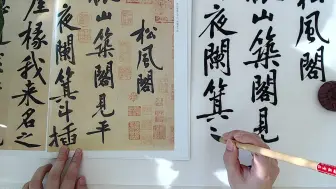 松風閣
山築閣見
夜闌箕
松風閣
山築閣見平
夜闌箕斗插
屋椽我来名之